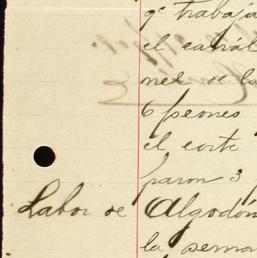 qe trabaja
el canal
nel de la
6 peones
el corte
paron 3
Labor de Algodón
la sema